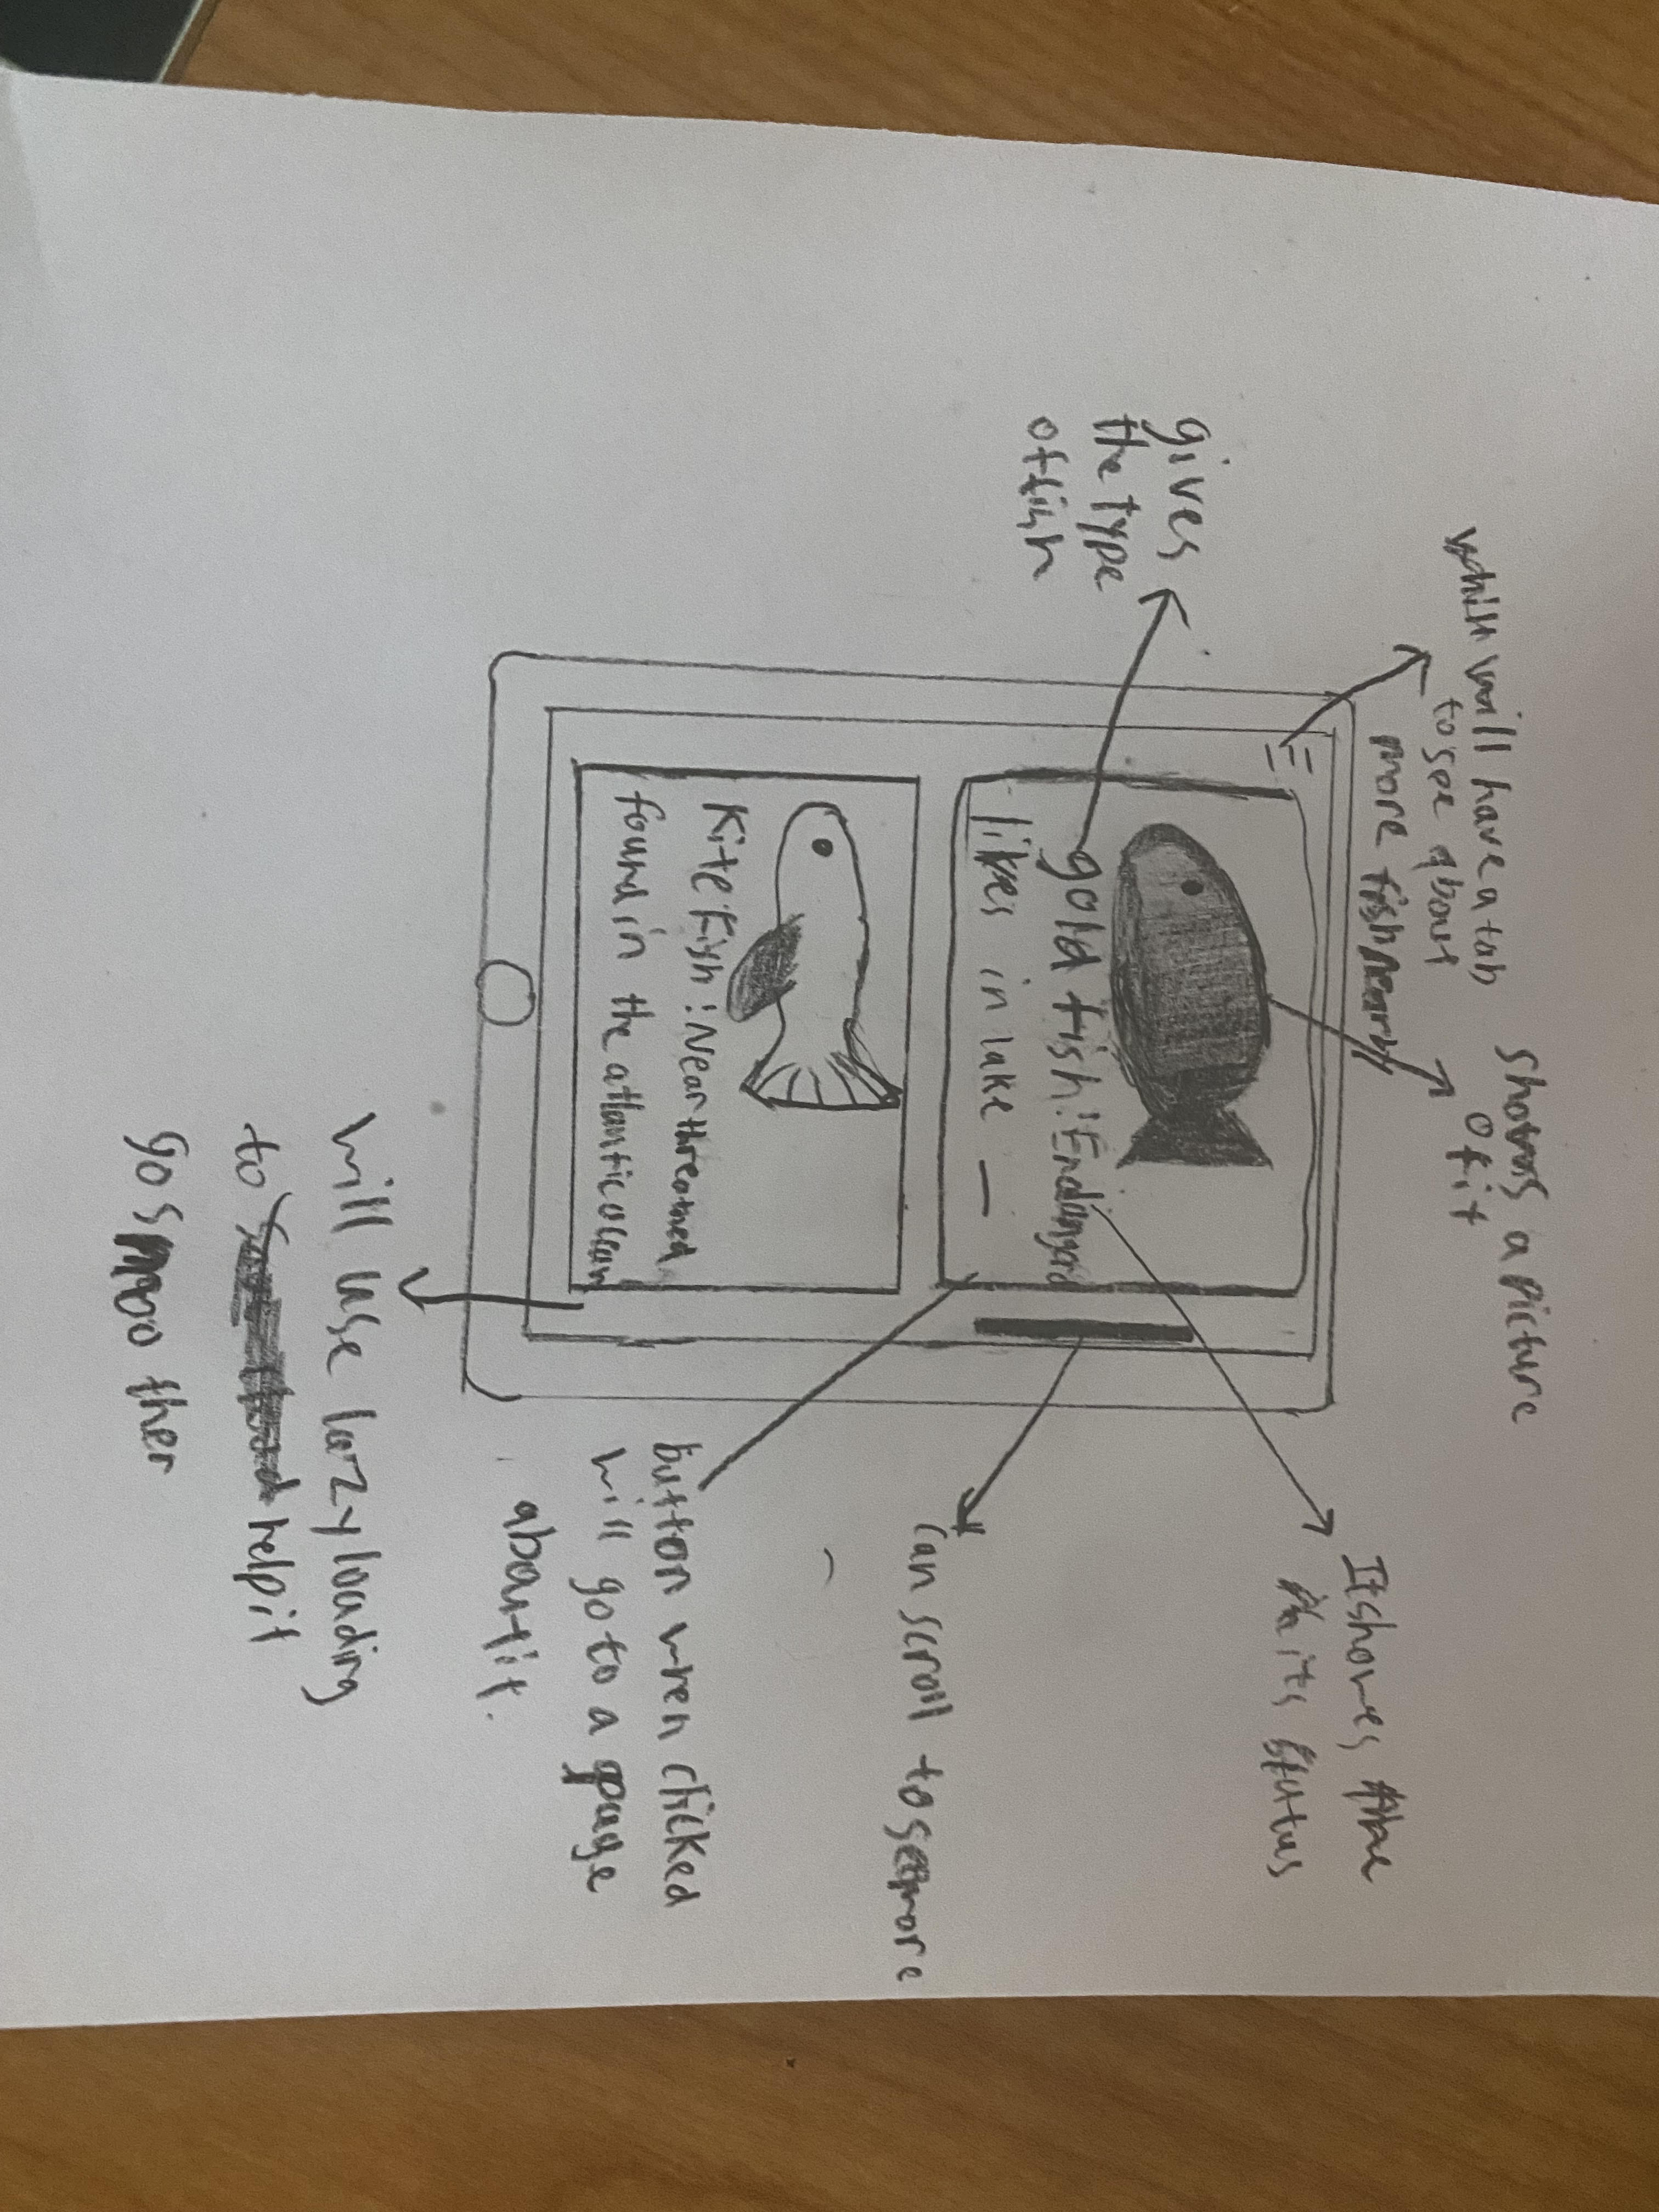 will have a tab
to see about
more fish nearby
shows a picture
of it
It shows the
its status
gives
the type
of fish
gold fish! Endangerd
lives in lake —
can scroll to see more
Kite Fish! Near threatned
found in the atlantic ocean
button when clicked
will go to a page
about it.
will use lazy loading
to help it
go smoother